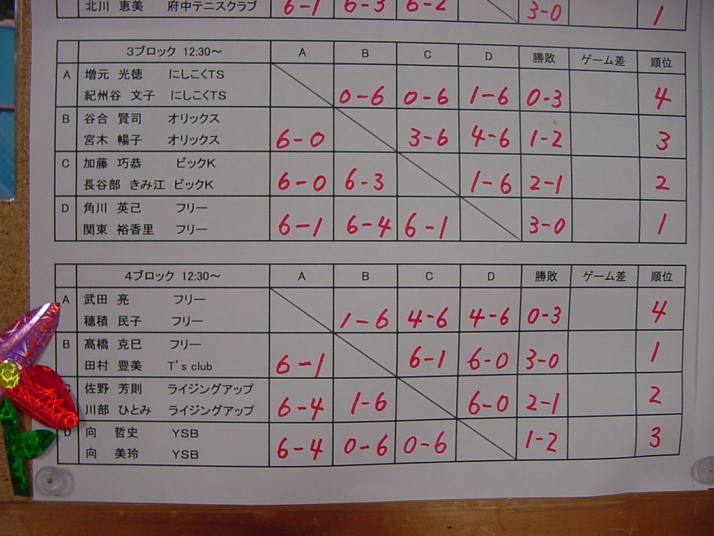 北川 恵美 府中テニスクラブ 6-1 6-3 6-2 3-0 1
3ブロック 12:30～ A B C D 勝敗 ゲーム差 順位
A 増元 光徳 にしこくTS
紀州谷 文子 にしこくTS 0-6 0-6 1-6 0-3 4
B 谷合 賢司 オリックス
宮木 暢子 オリックス 6-0 3-6 4-6 1-2 3
C 加藤 巧恭 ビックK
長谷部 きみ江 ビックK 6-0 6-3 1-6 2-1 2
D 角川 英己 フリー
関東 裕香里 フリー 6-1 6-4 6-1 3-0 1
4ブロック 12:30～ A B C D 勝敗 ゲーム差 順位
A 武田 亮 フリー
穂積 民子 フリー 1-6 4-6 4-6 0-3 4
B 髙橋 克巳 フリー
田村 豊美 T's club 6-1 6-1 6-0 3-0 1
C 佐野 芳則 ライジングアップ
川部 ひとみ ライジングアップ 6-4 1-6 6-0 2-1 2
D 向 哲史 YSB
向 美玲 YSB 6-4 0-6 0-6 1-2 3